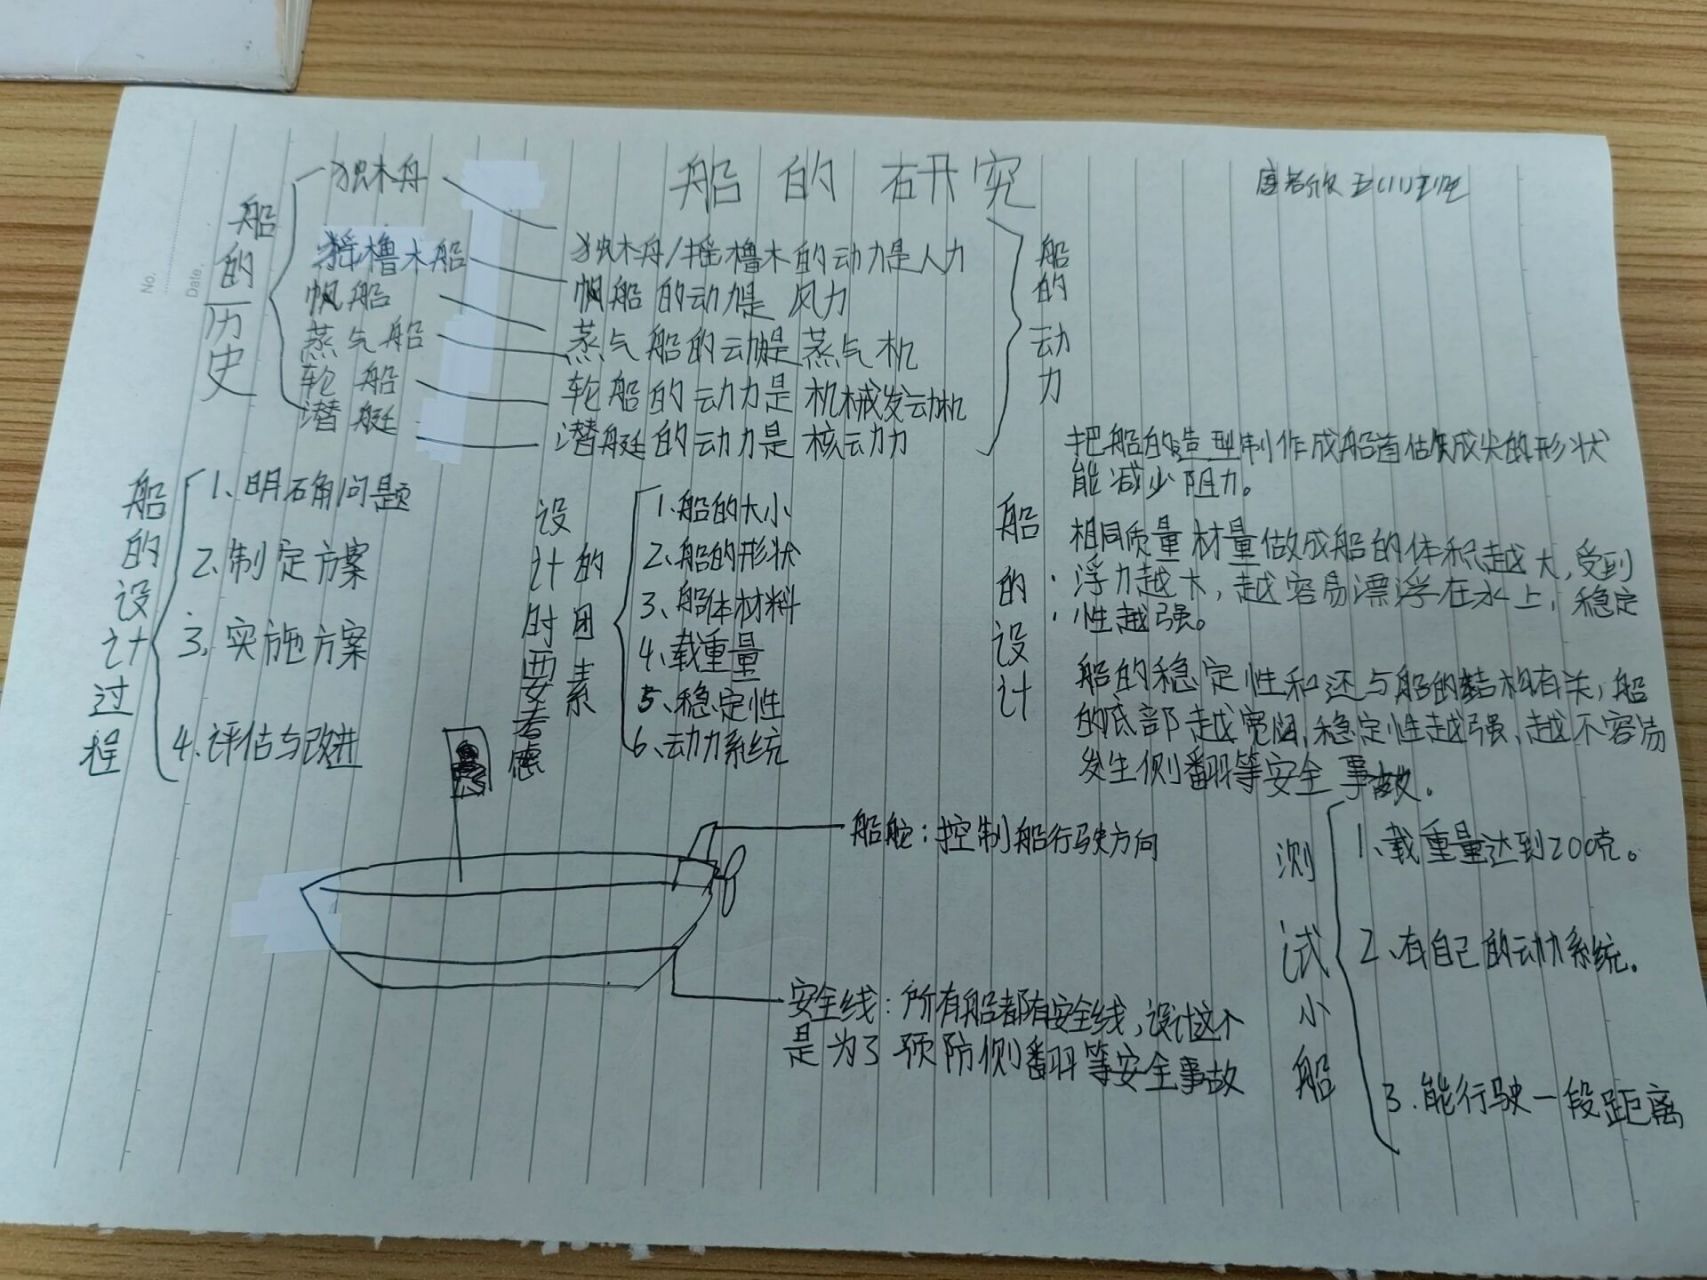 船的研究
五(11)班
No.
Date.
船的历史
独木舟
摇橹木船
帆船
蒸气船
轮船
潜艇
独木舟/摇橹木的动力是人力
帆船的动力是风力
蒸气船的动力是蒸气机
轮船的动力是机械发动机
潜艇的动力是核动力
船的动力
船的设计过程
1、明确问题
2、制定方案
3、实施方案
4、评估与改进
设计时要考虑
的因素
1、船的大小
2、船的形状
3、船体材料
4、载重量
5、稳定性
6、动力系统
船的设计
把船的造型制作成船首估成尖的形状
能减少阻力。
相同质量材量做成船的体积越大,受到
浮力越大,越容易漂浮在水上,稳定
性越强。
船的稳定性和还与船的结构有关,船
的底部越宽阔,稳定性越强、越不容易
发生侧翻等安全事故。
船舵:控制船行驶方向
安全线:所有船都有安全线,设计这个
是为了预防侧翻等安全事故
测试小船
1、载重量达到200克。
2、有自己的动力系统。
3.能行驶一段距离